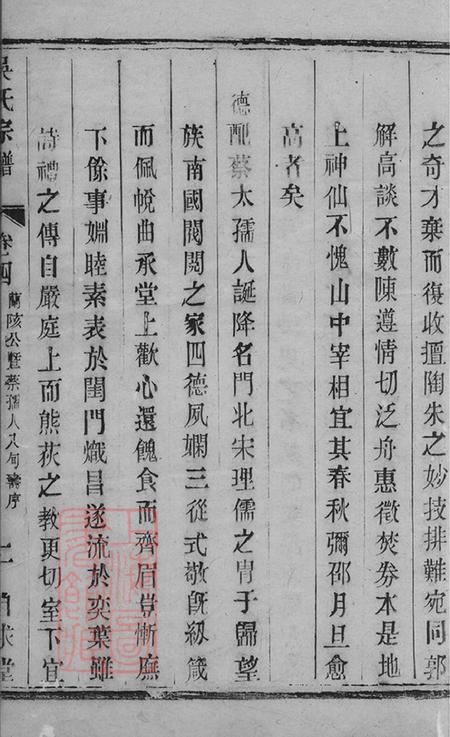 之奇才棄而復收擅陶朱之妙技排難宛同郭
解高談不數陳遵情切泛舟惠徵焚券本是地
上神仙不愧山中宰相宜其春秋彌邵月旦愈
高者矣
德配蔡太孺人誕降名門北宋理儒之冑于歸望
族南國閥閱之家四德夙嫻三從式敬旣紉箴
而佩帨曲承堂上歡心還餽食而齊眉豈慚廡
下餘事婣睦素表於閨門熾昌遂流於奕葉雖
詩禮之傳自嚴庭上而熊荻之教更切室下宜
吳氏宗譜
卷之四
蘭陔公暨蔡孺人八旬壽序
二